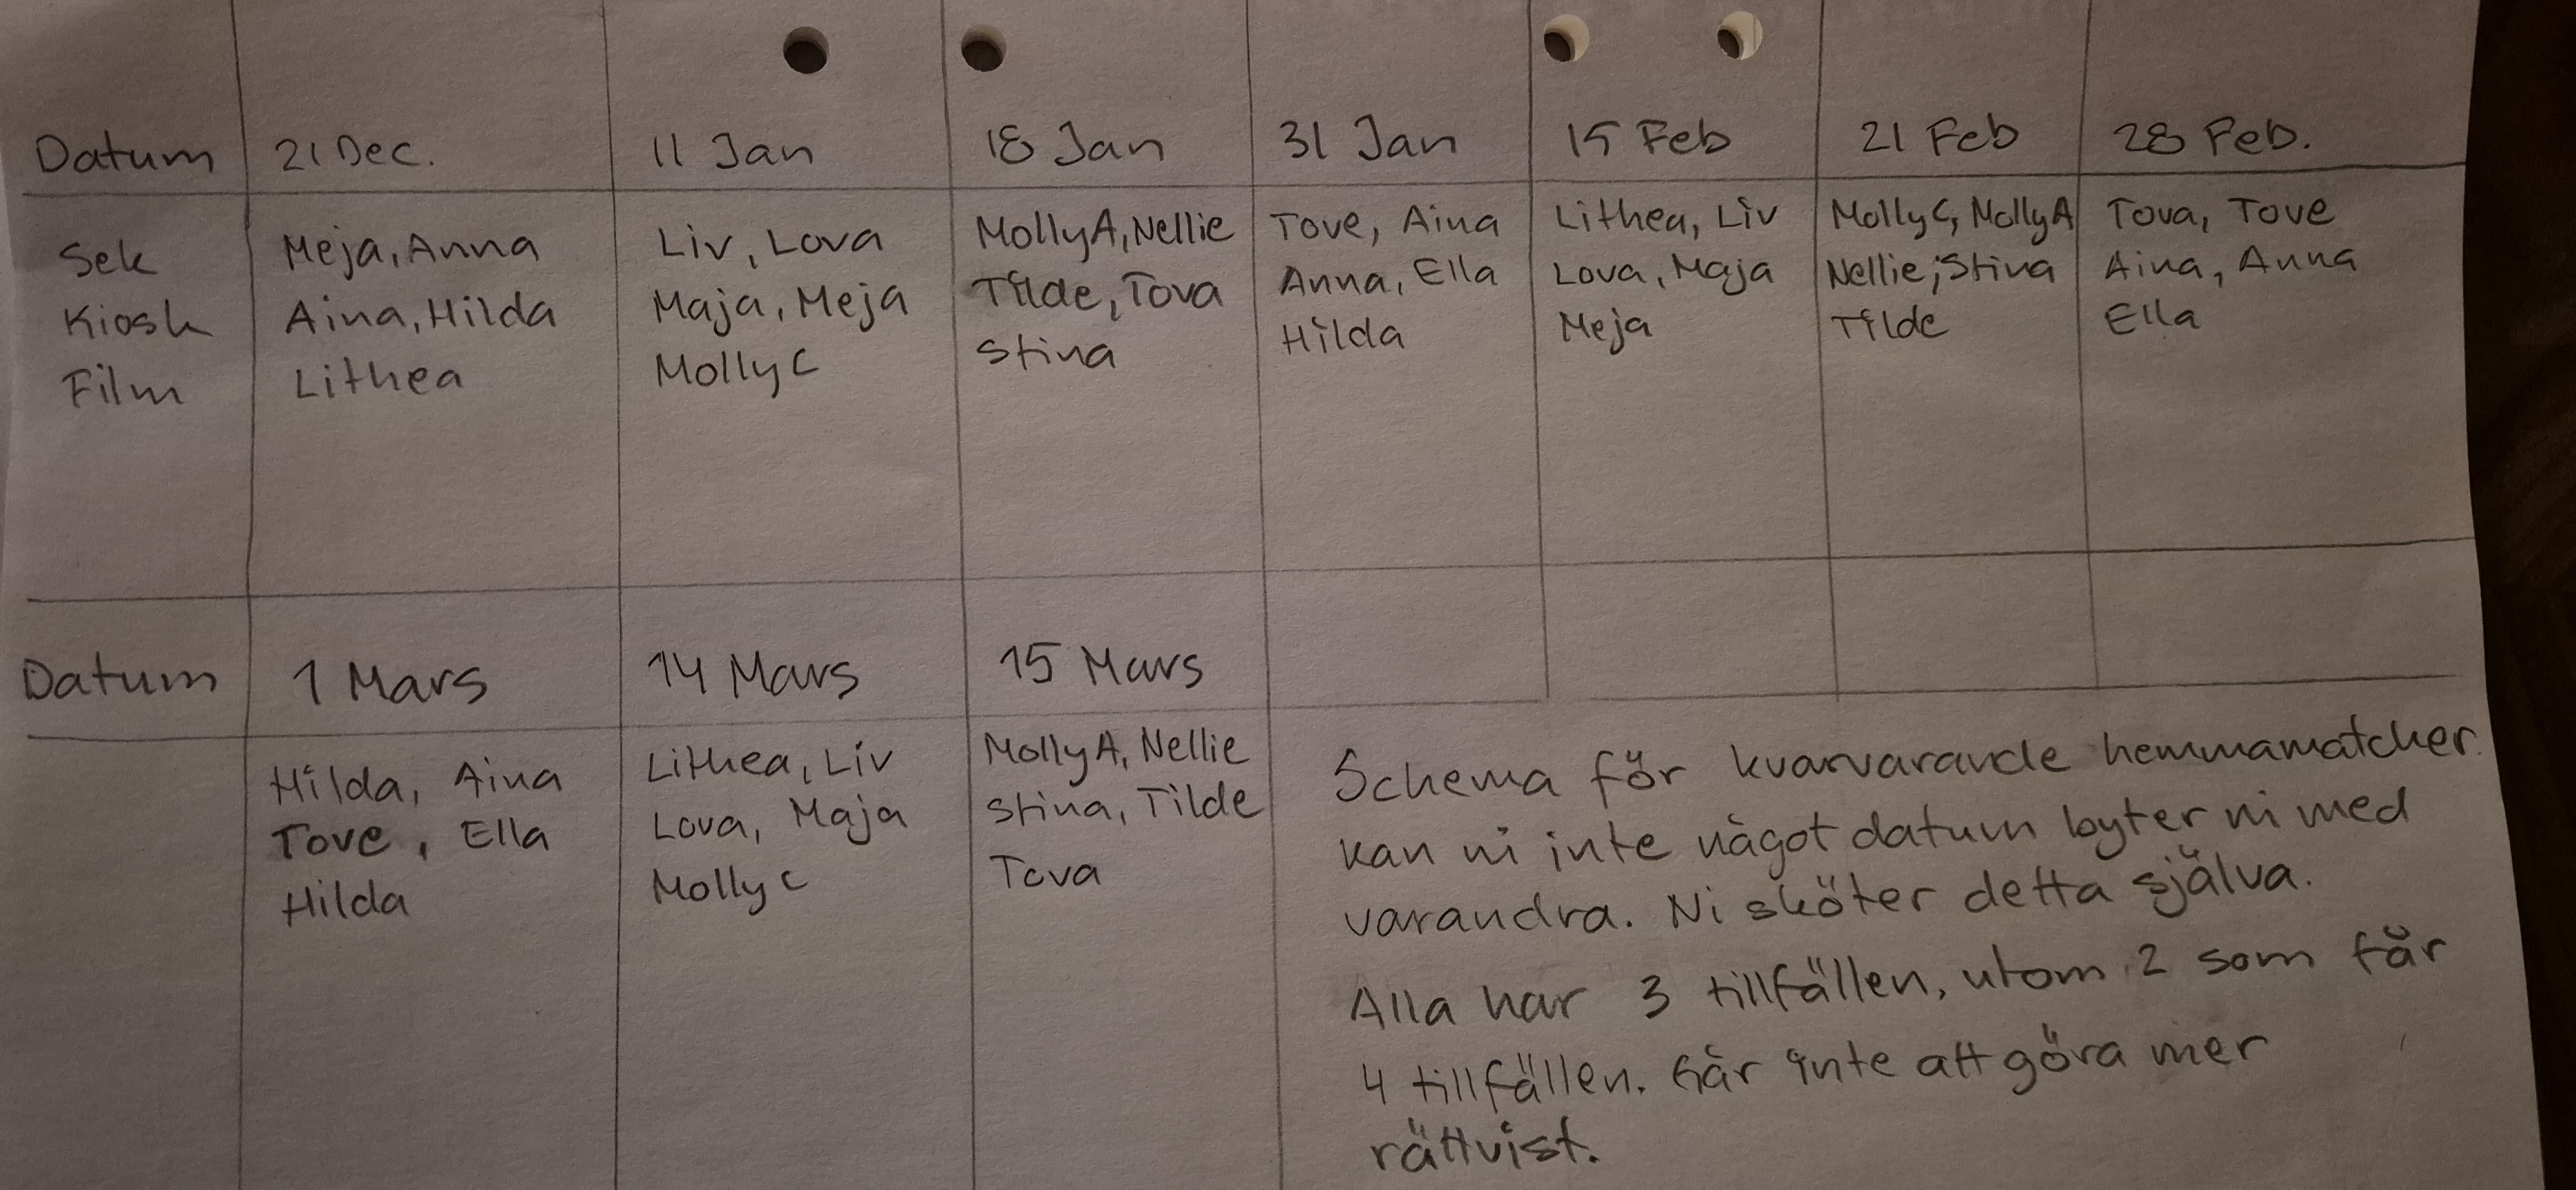 Datum 21 Dec. 11 Jan 18 Jan 31 Jan 15 Feb 21 Feb 28 Feb.
Sek Meja, Anna Liv, Lova MollyA, Nellie Tove, Aina Lithea, Liv MollyC, MollyA Tova, Tove
Kiosk Aina, Hilda Maja, Meja Tilde, Tova Anna, Ella Lova, Maja Nellie, Stina Aina, Anna
Film Lithea MollyC Stina Hilda Meja Tilde Ella
Datum 1 Mars 14 Mars 15 Mars
Hilda, Aina Lithea, Liv MollyA, Nellie
Tove, Ella Lova, Maja Stina, Tilde
Hilda MollyC Tova
Schema för kvarvarande hemmamatcher.
kan ni inte något datum byter ni med
varandra. Ni sköter detta själva.
Alla har 3 tillfällen, utom 2 som får
4 tillfällen. Går inte att göra mer
rättvist.